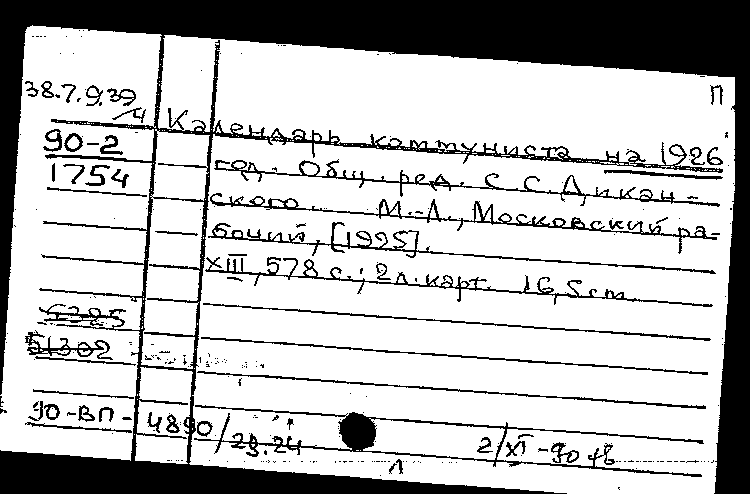 П
38.7.9.39/4
Календарь коммуниста на 1926
90-2
1754
год. Общ. ред. С. С. Дикан-
ского. М.-Л., Московский ра-
бочий, [1925].
XIII, 578 с.; 2 л. карт. 16,5 cm.
51302
90-ВП-4890/29.24
2/XI-90
Л